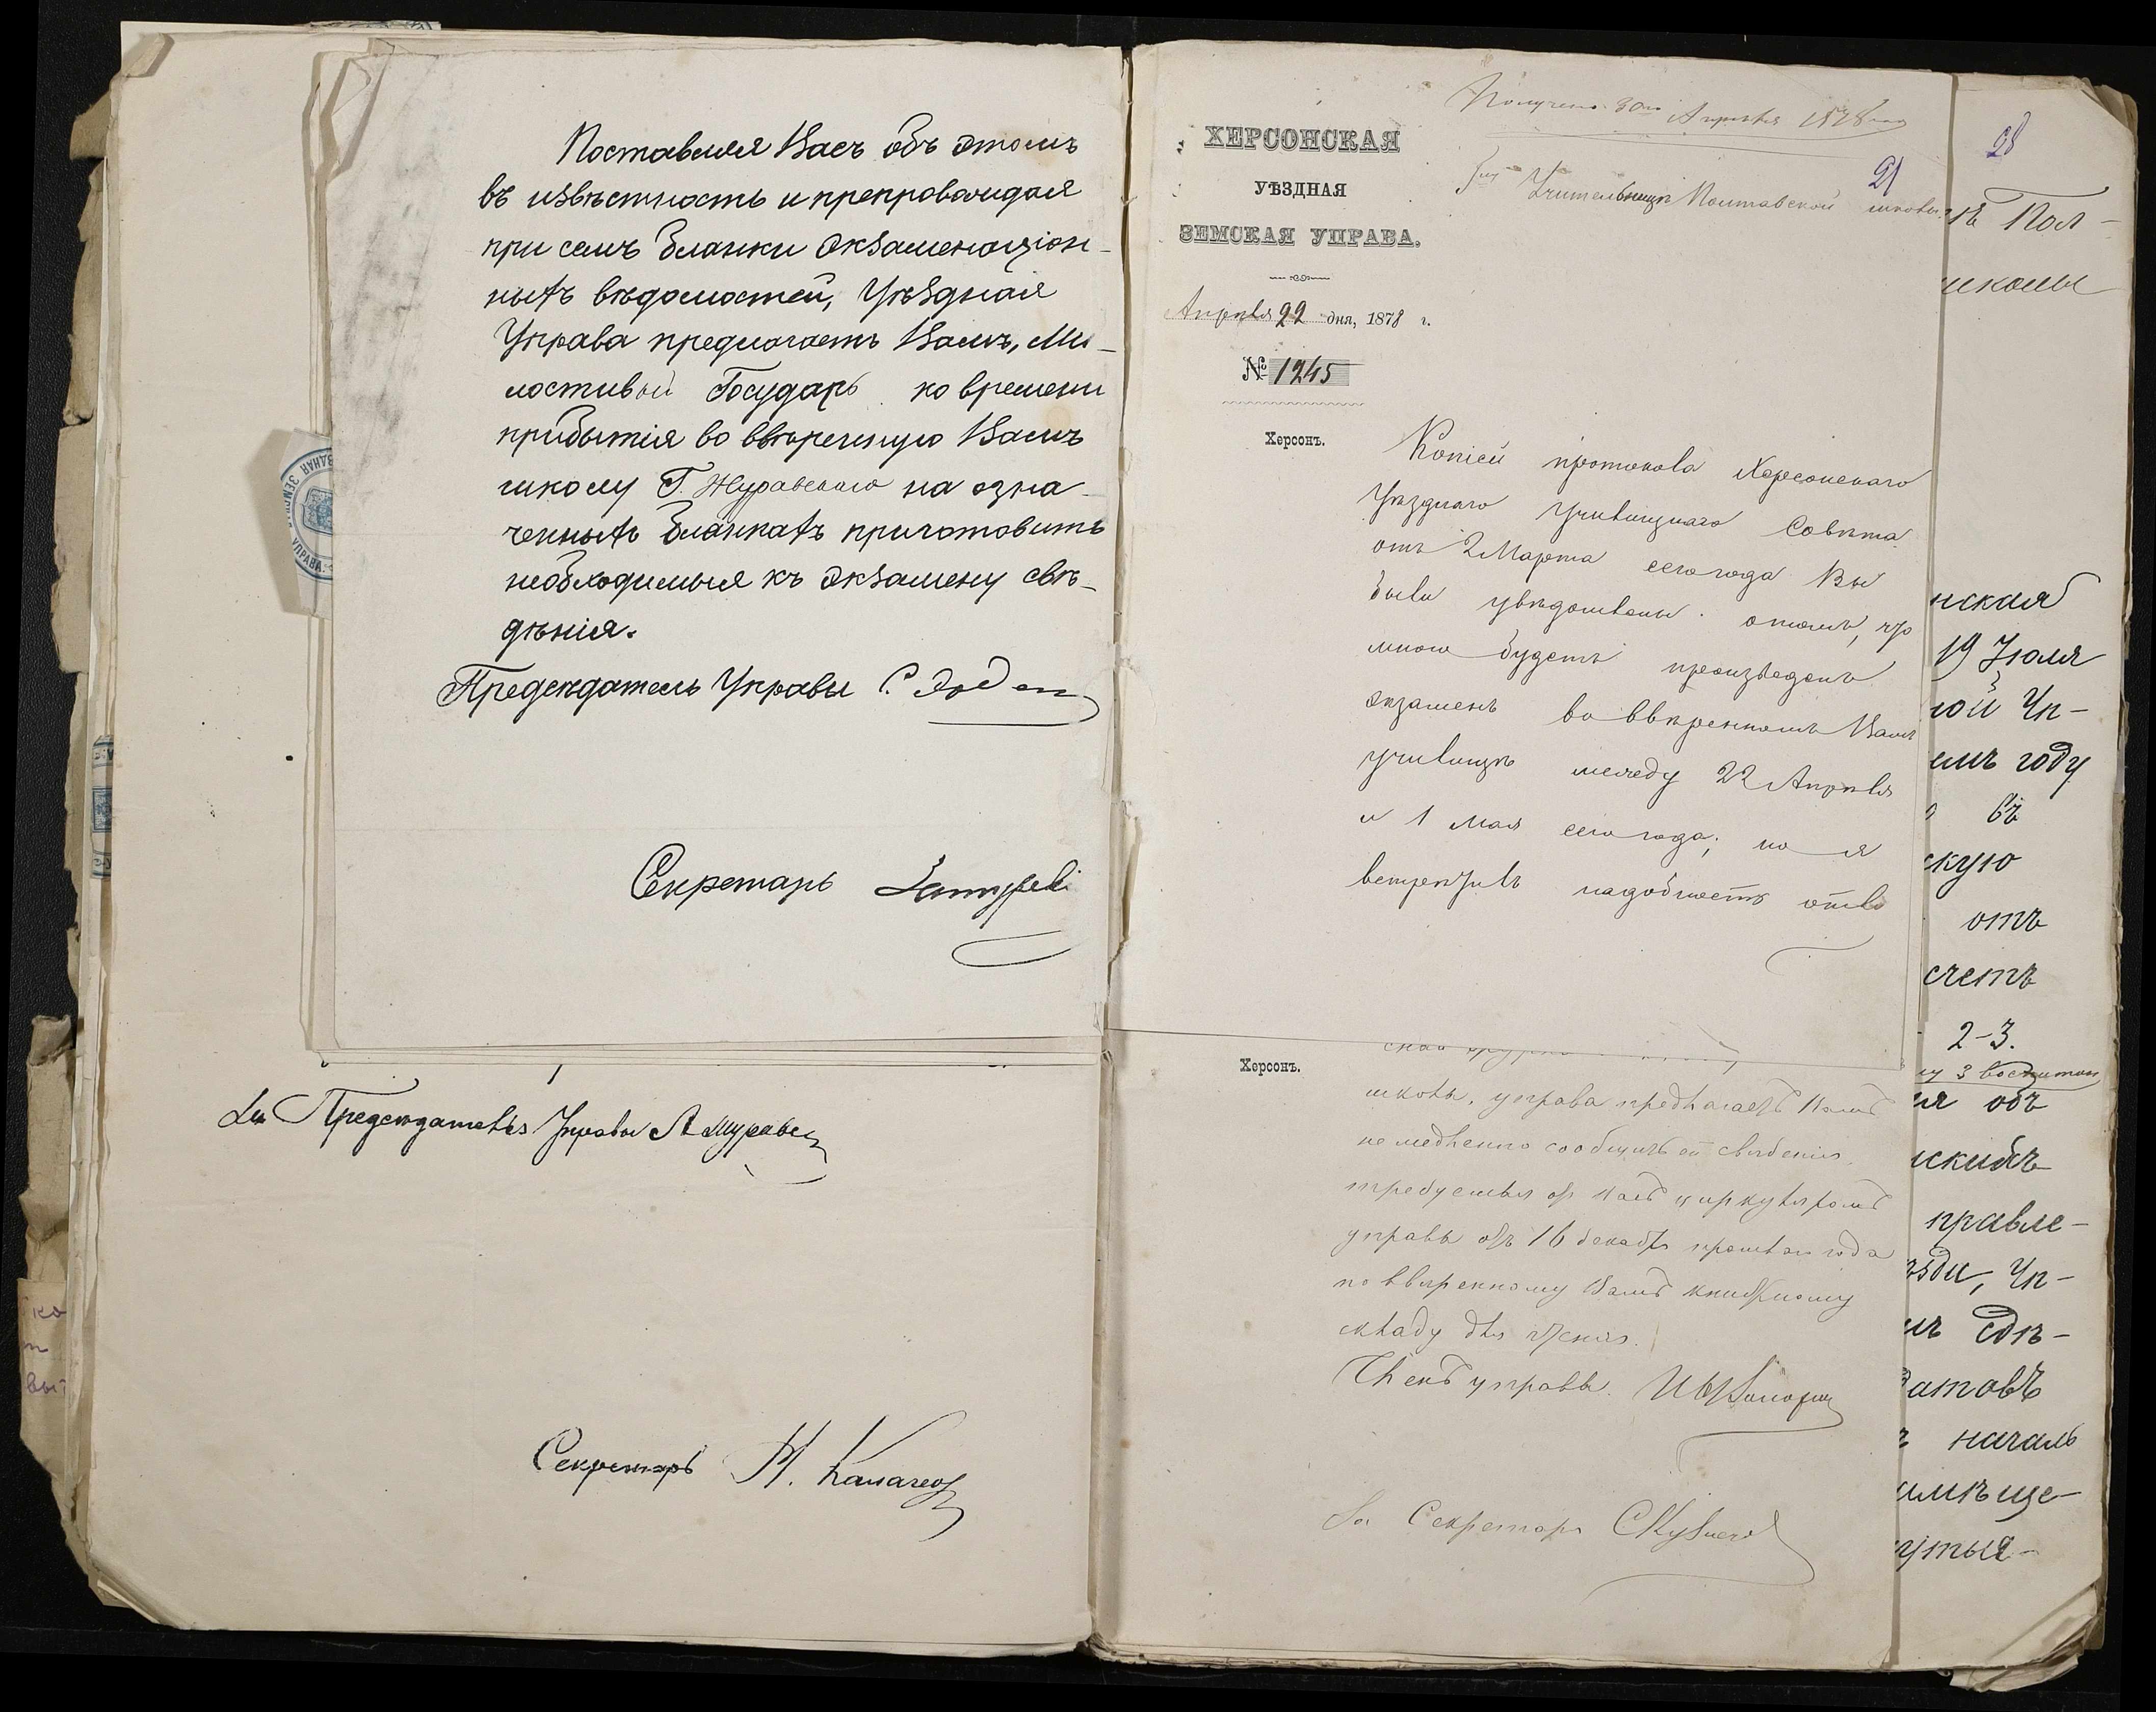 Поставляя Васъ объ этомъ
въ извѣстность и препровождая
при семъ бланки экзаменаціон-
ныхъ вѣдомостей, Уѣздная
Управа предлагаетъ Вамъ, Ми-
лостивый Государь ко времени
прибытія во ввѣренную Вамъ
школу Г. Журавскаго на озна-
ченныхъ бланкахъ приготовить
необходимыя къ экзамену свѣ-
дѣнія.
Предсѣдатель Управы
Секретарь
ЗЕМСКАЯ УПРАВА
За Предсѣдателя Управы
Секретарь
Получено 30го Апрѣля 1878 года
21
ХЕРСОНСКАЯ
УѢЗДНАЯ
ЗЕМСКАЯ УПРАВА.
Апрѣля 22 дня, 1878 г.
№ 1245
Херсонъ.
Учительницѣ Полтавской школы
Копіей протокола Херсонскаго
Уѣзднаго Училищнаго Совѣта
отъ 2 Марта сего года Вы
были увѣдомлены о томъ, что
мною будетъ произведенъ
экзаменъ во ввѣренномъ Вамъ
училищѣ между 22 Апрѣля
и 1 Мая сего года; но я
встрѣтивъ надобность
Херсонъ.
школы, управа предлагаетъ Вамъ
немедленно сообщить ей сведенія,
требуемыя отъ Васъ циркуляромъ
управы отъ 16 декабря прошлаго года
по ввѣренному Вамъ книжному
складу для чтенія.
Членъ управы
За Секретаря
28
Пол-
школы
нская
19 Іюля
ной Уп-
емъ году
въ
скую
отъ
счетъ
2-3.
объ
правле-
Уп-
сдѣ-
датовъ
началь
имѣще-
утыя-